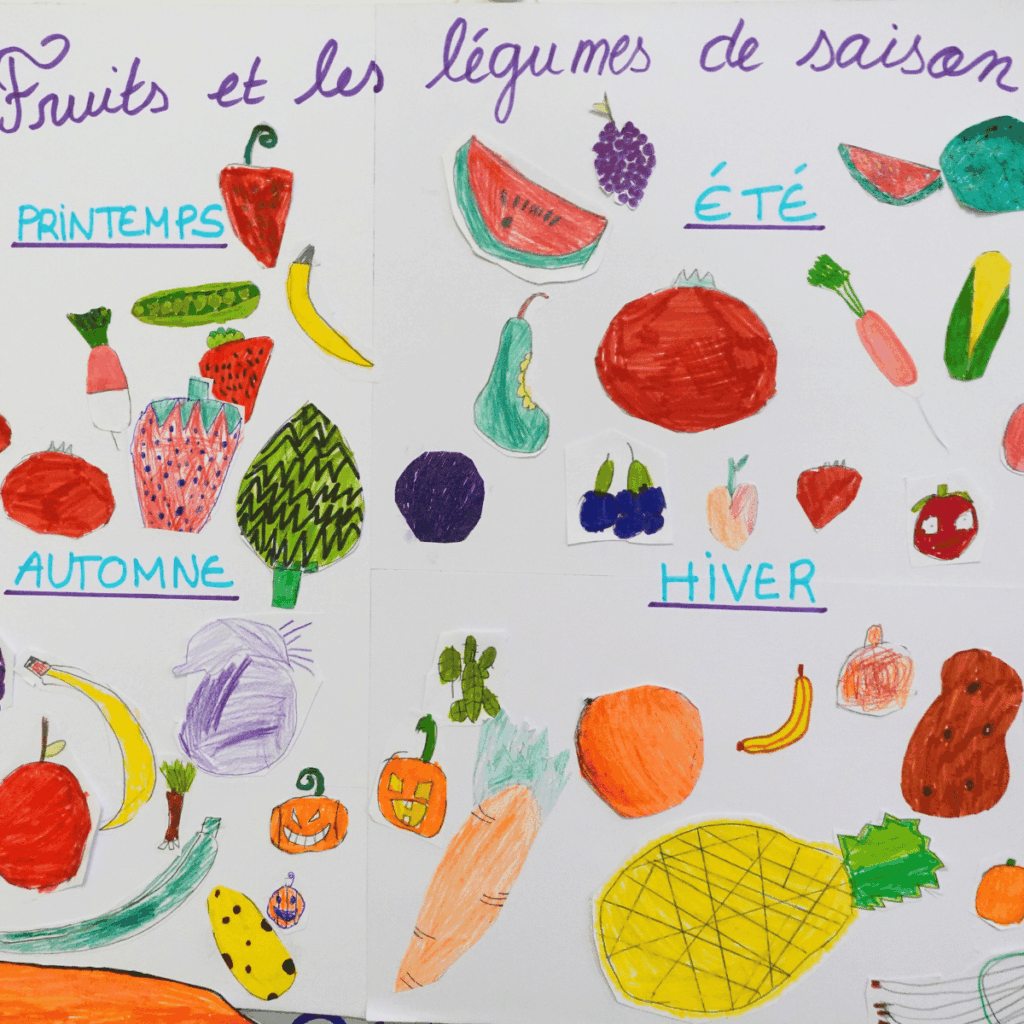 Fruits et les légumes de saison
PRINTEMPS
ÉTÉ
AUTOMNE
HIVER